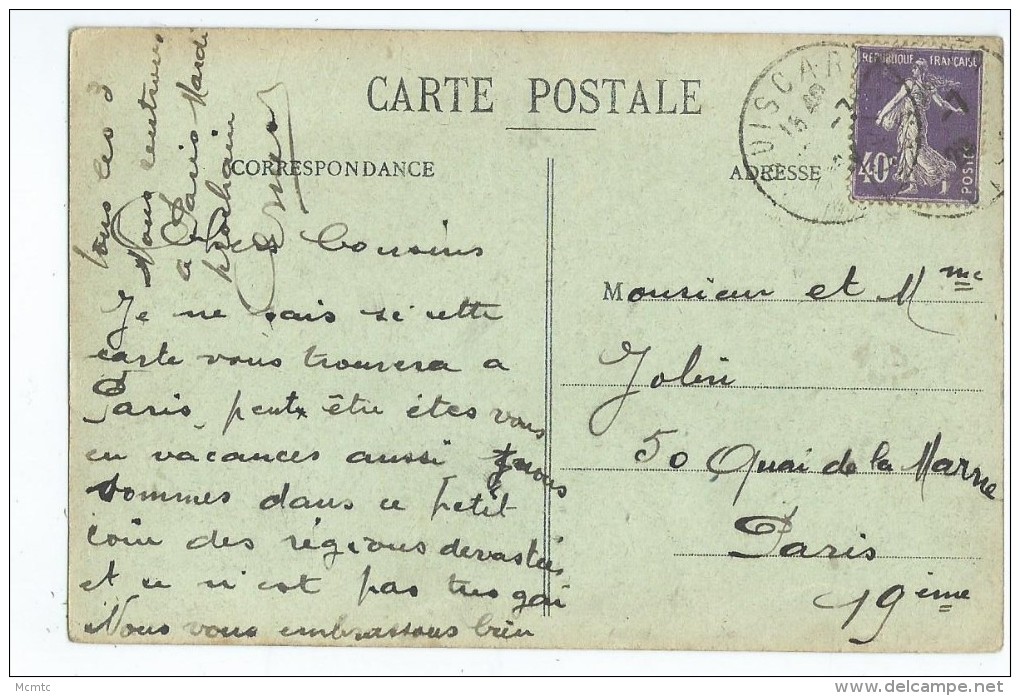 CARTE POSTALE
CORRESPONDANCE
ADRESSE
RÉPUBLIQUE FRANÇAISE
40c
POSTES
GUISCARD
Chers Cousins
Je ne sais si cette
carte vous trouvera a
Paris, peut être êtes vous
en vacances aussi nous
sommes dans ce petit
coin des régions devastées
et ce n'est pas tres gai
Nous vous embrassons bien
tous les 3
Nous rentrons
a Paris Mardi
prochain
Monsieur et Mme
Jolin
50 Quai de la Marne
Paris
19eme
Mcmtc
delcampe.net